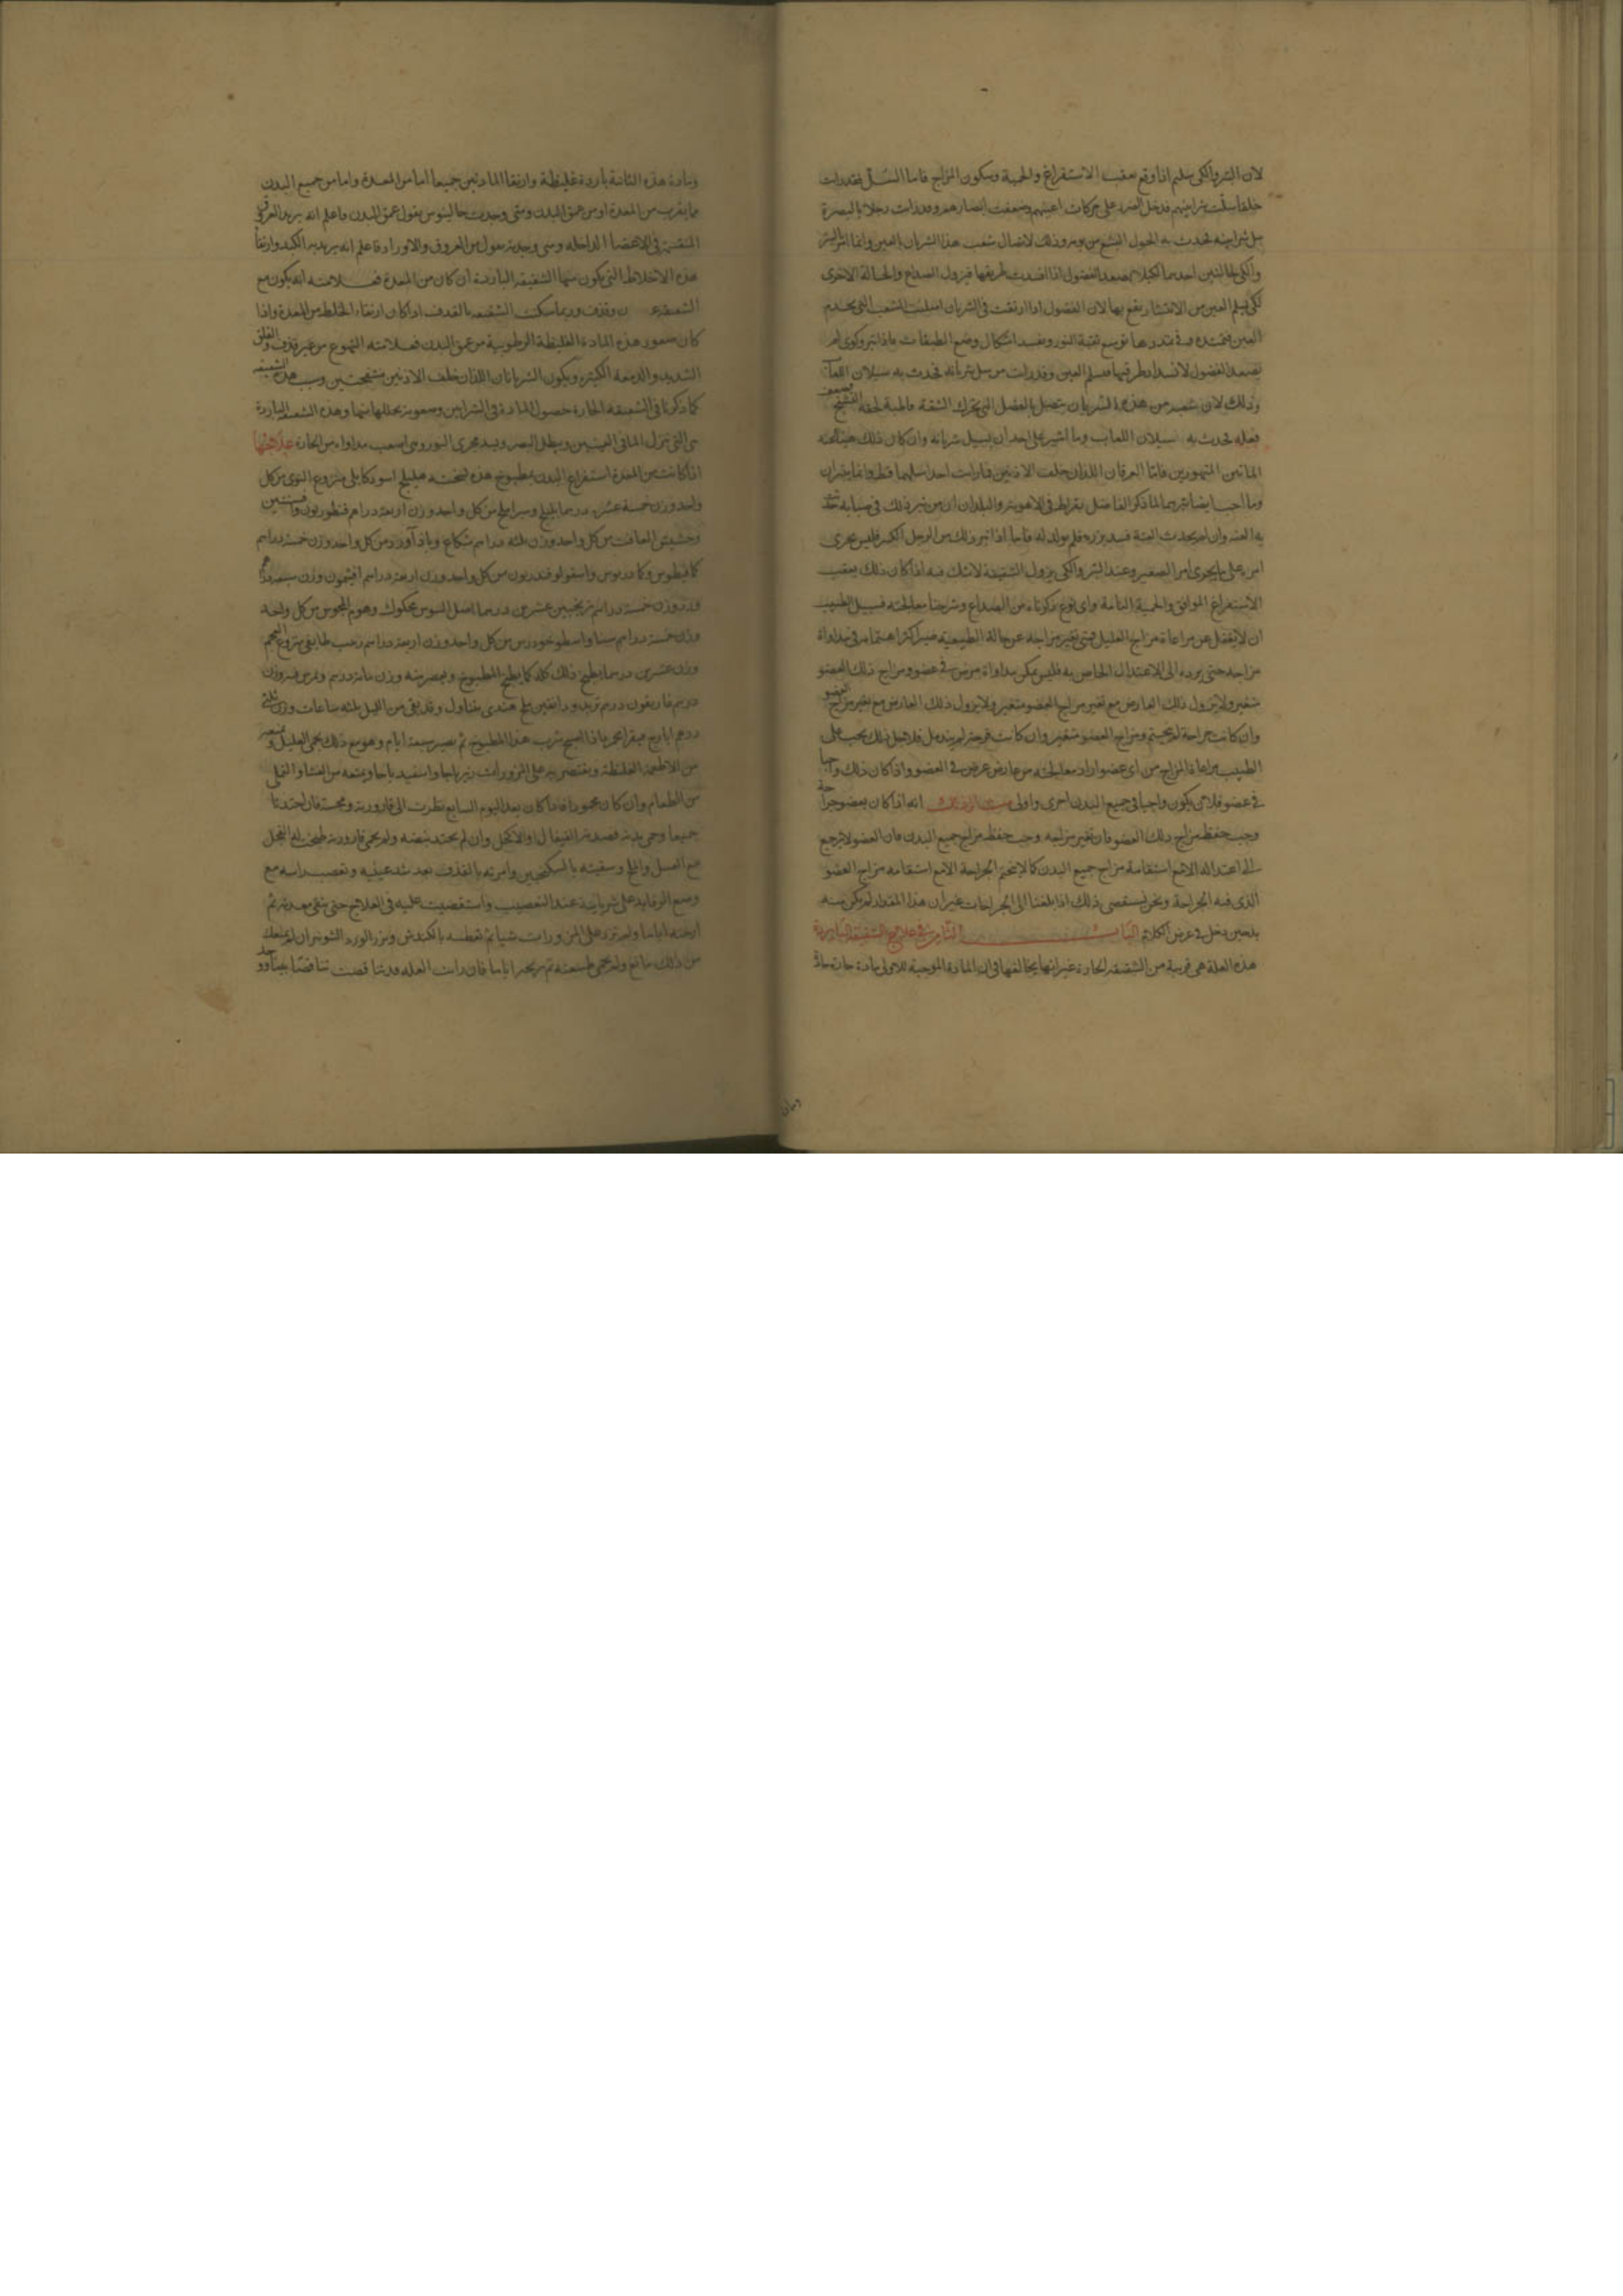 لان البتر والكى سليم اذا وقع بعقب الاستفراغ والحمية وسكون المزاج فاما السل فقد رايت
خلقا سلت شرايينهم فدخل الضرر على حركات اعينهم وضعفت ابصارهم وقد رايت رجلا بالبصرة
سل شريانيه فحدث به الحول البشع من يومه وذلك لاتصال شعب هذا الشريان بالعين وانما اثر البتر
والكى لحالتين احديهما لكيلا يصعد الفضول اذا انسدت طريقها فيزول الصداع والحالة الاخرى
لكى يسلم العين من الانتشار يقع بها لان الفضول اذا ارتقت فى الشريان امتلئت الشعب التى تخدم
العين فتمتدد وفى تمددها توسع ثقبة النور وتفسد اشكال وضع الطبقات فاذا بتر وكوى لم
يصعد الفضول لانسداد طرقها فسلم العين وقد رايت من سل شريانه فحدث به سيلان اللعاب
وذلك لان شعبه من هذه الشريان يتصل بالعضل التى تحرك الشفة قاطبة لحقه التشنج
فعله فحدث به سيلان اللعاب وما اشير على احد ان يسيل شريانه وان كان ذلك هينا عند
الماتنين المتهورين فاما العرقان اللذان خلف الاذنين فما رايت احدا سلهما قط وانما يبتران
وما احب ايضا بترهما لما ذكر الفاضل بقراط فى الاهوية والبلدان ان من بتر ذلك فى صبايه حدث
به العنه وان لم يحدث العنة فسد بزره فلم يولد له فاما اذا بتر ذلك من الرجل الكبير فليس يجرى
امره على ما يجرى امر الصغير وعند البتر والكى يزول الشقيقة لاشك فيه اذا كان ذلك بعقب
الاستفراغ الموافق والحمية التامة واى نوع ذكرناه من الصداع وشرحنا معالجته فسبيل الطبيب
ان لا يغفل عن مراعاة مزاج العليل فمتى تغير مزاجه عن حالة الطبيعية صير اكثر اهتمامه فى مداواة
مزاجه حتى يرده الى الاعتدال الخاص به فليس يمكن مداواة مرض فى عضو ومزاج ذلك العضو
متغير ولا يزول ذلك العارض مع تغير مزاج العضو متغير ولا يزول ذلك العارض مع تغير مزاج العضو
وان كانت جراحة لم تختم ومزاج العضو متغير وان كانت قرحة لم يندمل فلاجل ذلك يجب على
الطبيب مراعاة المزاج من اى عضو اراد معالجته من عارض عرض فى العضو واذا كان ذلك واجبا
فى عضو فلان يكون واجبا فى جميع البدن احرى واولى انه اذا كان بعضو جراحة
وجب حفظ مزاج ذلك العضو فان تغير مزاجه وجب حفظ مزاج جميع البدن فان العضو لا يرجع
الى اعتداله الا مع استقامة مزاج جميع البدن كما لا يلتحم الجراحة الا مع استقامه مزاج العضو
الذى فيه الجراحة ونحن نستقصى ذلك اذا بلغنا الى الجراحات غير ان هذا المقدار لم يكن منه
بد حين دخل فى عرض الكلام الباب الثامن فى علاج الشقيقة الباردة
هذه العلة هى قريبة من الشقيقة الحارة غير انها يخالفها فى ان المادة الموجبة للاولى مادة حارة حادة
ومادة هذه الثانية باردة غليظة وارتقا المادتين جميعا اما من المعدة واما من جميع البدن
ما يقرب من المعدة او من عمق البدن ومتى وجدت جالينوس يقول عمق البدن فاعلم انه يريد العروق
المنقسمة فى الاعضا الداخله ومتى وجدته يقول من العروق والاوراد فاعلم انه يريد به الكبد وارتقا
هذه الاخلاط التى يكون منها الشقيقة الباردة ان كان من المعدة فعلامته انه يكون مع
الشقيقة وقذف وربما سكنت الشقيقه بالقذف اذا كان ارتقاء الخلط من المعدة واذا
كان صعود هذه المادة الغليظة الرطوبية من عمق البدن فعلامته التهوع من غير قذف والقلق
الشديد والدمعة الكثيره ويكون الشريانان اللذان خلف الاذنين منتفختين وسبب هذه الشقيقه
كما ذكرنا فى الشقيقه الحارة حصول المادة فى الشرايين وصعوبة تحللها منها وهذه الشقيقه الباردة
هى التى تنزل الما فى العينين ويبطل البصر ويسد مجرى النور وهى اصعب مداواه من الحارة علاجها
اذا كانت من المعدة استفراغ البدن بمطبوخ هذه نسخته هليلج اسود كابلى منزوع النوى من كل
واحد وزن خمسة عشر درهما بليلج وسير املج من كل واحد وزن اربعة دراهم قنطوريون وافسنتين
وحشيش الغافت من كل واحد وزن ثلثه دراهم شكاع وباذاورد من كل واحد وزن خمسة دراهم
كمافيطوس وكمادريوس واسقولوقندريون من كل واحد وزن اربعة دراهم افيثمون وزن سبعة دراهم
وزن خمسة دراهم ترنجبين عشرين درهما اصل السوس محكوك وهوم المجوس من كل واحد
وزن خمسة دراهم سنا واسطوخودوس من كل واحد وزن اربعة دراهم زبيب طايفى منزوع العجم
وزن عشرين درهما يطبخ ذلك كله كما يطبخ المطبوخ ويصير منه وزن مائة درهم ويمرس فيه وزن
درهم غاريقون درهم تربد ودانقين ملح هندى يتناول وقد بقى من الليل ثلثه ساعات وزن ثلثة
درهم ايارج فيقرا مخمر فاذا اصبح شرب هذا المطبوخ ثم تصبر سبعة ايام وهو مع ذلك يحمى العليل
من الاطعمة الغليظة ويقتصر به على المزورات زيرباجا واسفيدباجا ويمنعه من العشا والتملى
من الطعام وان كان محمودا فاذا كان بعد اليوم السابع نظرت الى قارورته ومجسته فان احتدتا
جميعا وحمى بدنه فصدته القيفال او الاكحل وان لم يحتد نبضه ولم يحمى قارورته طبخت له الفجل
مع العسل والملح وسقيته بالسكنجبين وامرته بالقذف بعد شد عينيه وتعصيب راسه مع
وضع الرفايد على شريانيه عند التعصيب واستقصيت عليه فى العلاج حتى ينقى معدته ثم
ارحته اياما ولم تزد على المزورات شيا ثم تعطسه بالكندش وبزر الورد الشونيز ان لم يمنعك
من ذلك مانع ولم يحمى طبيعته ثم تريحه اياما فان رايت العله قد تناقصت تناقصا بينا
ومان